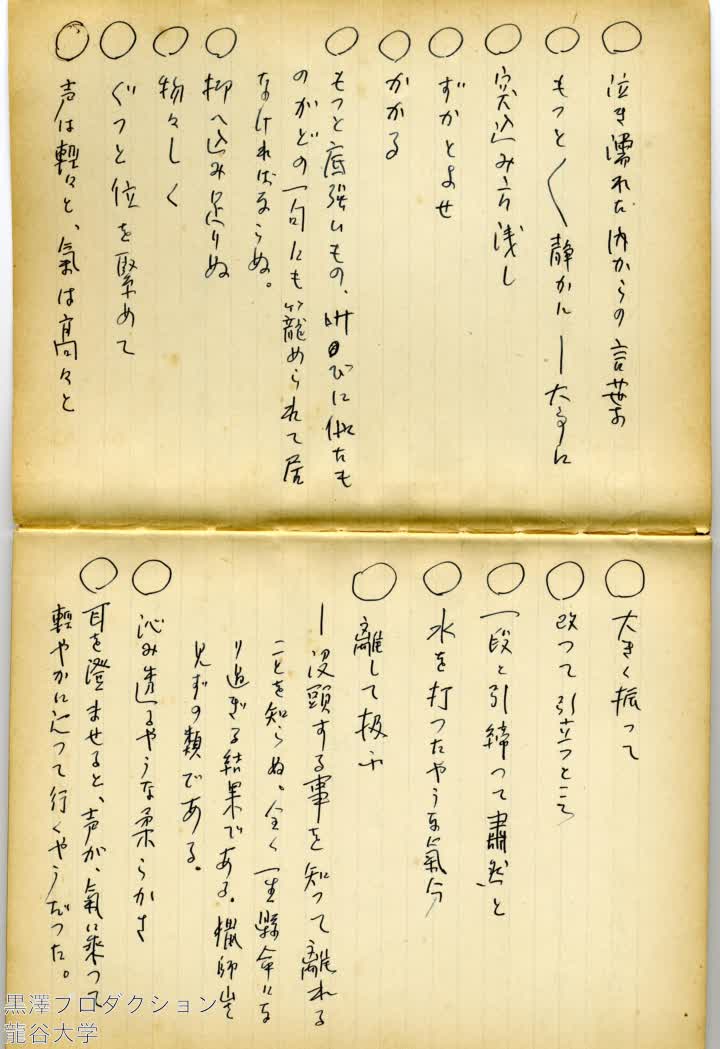 ○ 泣き濡れた内からの言葉な
○ もつと〱静かに ― 大事に
○ 突込み方浅し
○ ずかとよせ
○ かかる
○ もつと底強いもの、叫びに似たも
のがどの一句にも籠められて居
なければならぬ。
○ 抑へ込み足りぬ
○ 物々しく
○ ぐつと位を緊めて
○ 声は軽々と、氣は高々と
○ 大きく振って
○ 改つて引立つところ
○ 一段と引締つて肅然と
○ 水を打つたやうな氣分
○ 離して扱ふ
― 没頭する事を知つて離れる
ことを知らぬ。全く一生懸命にな
り過ぎる結果である。獵師山を
見ずの類である。
○ 沁み透るやうな柔らかさ
○ 耳を澄ませると、声が、氣に乘つて
軽やかに辷つて行くやうだつた。
黒澤プロダクション
龍谷大学